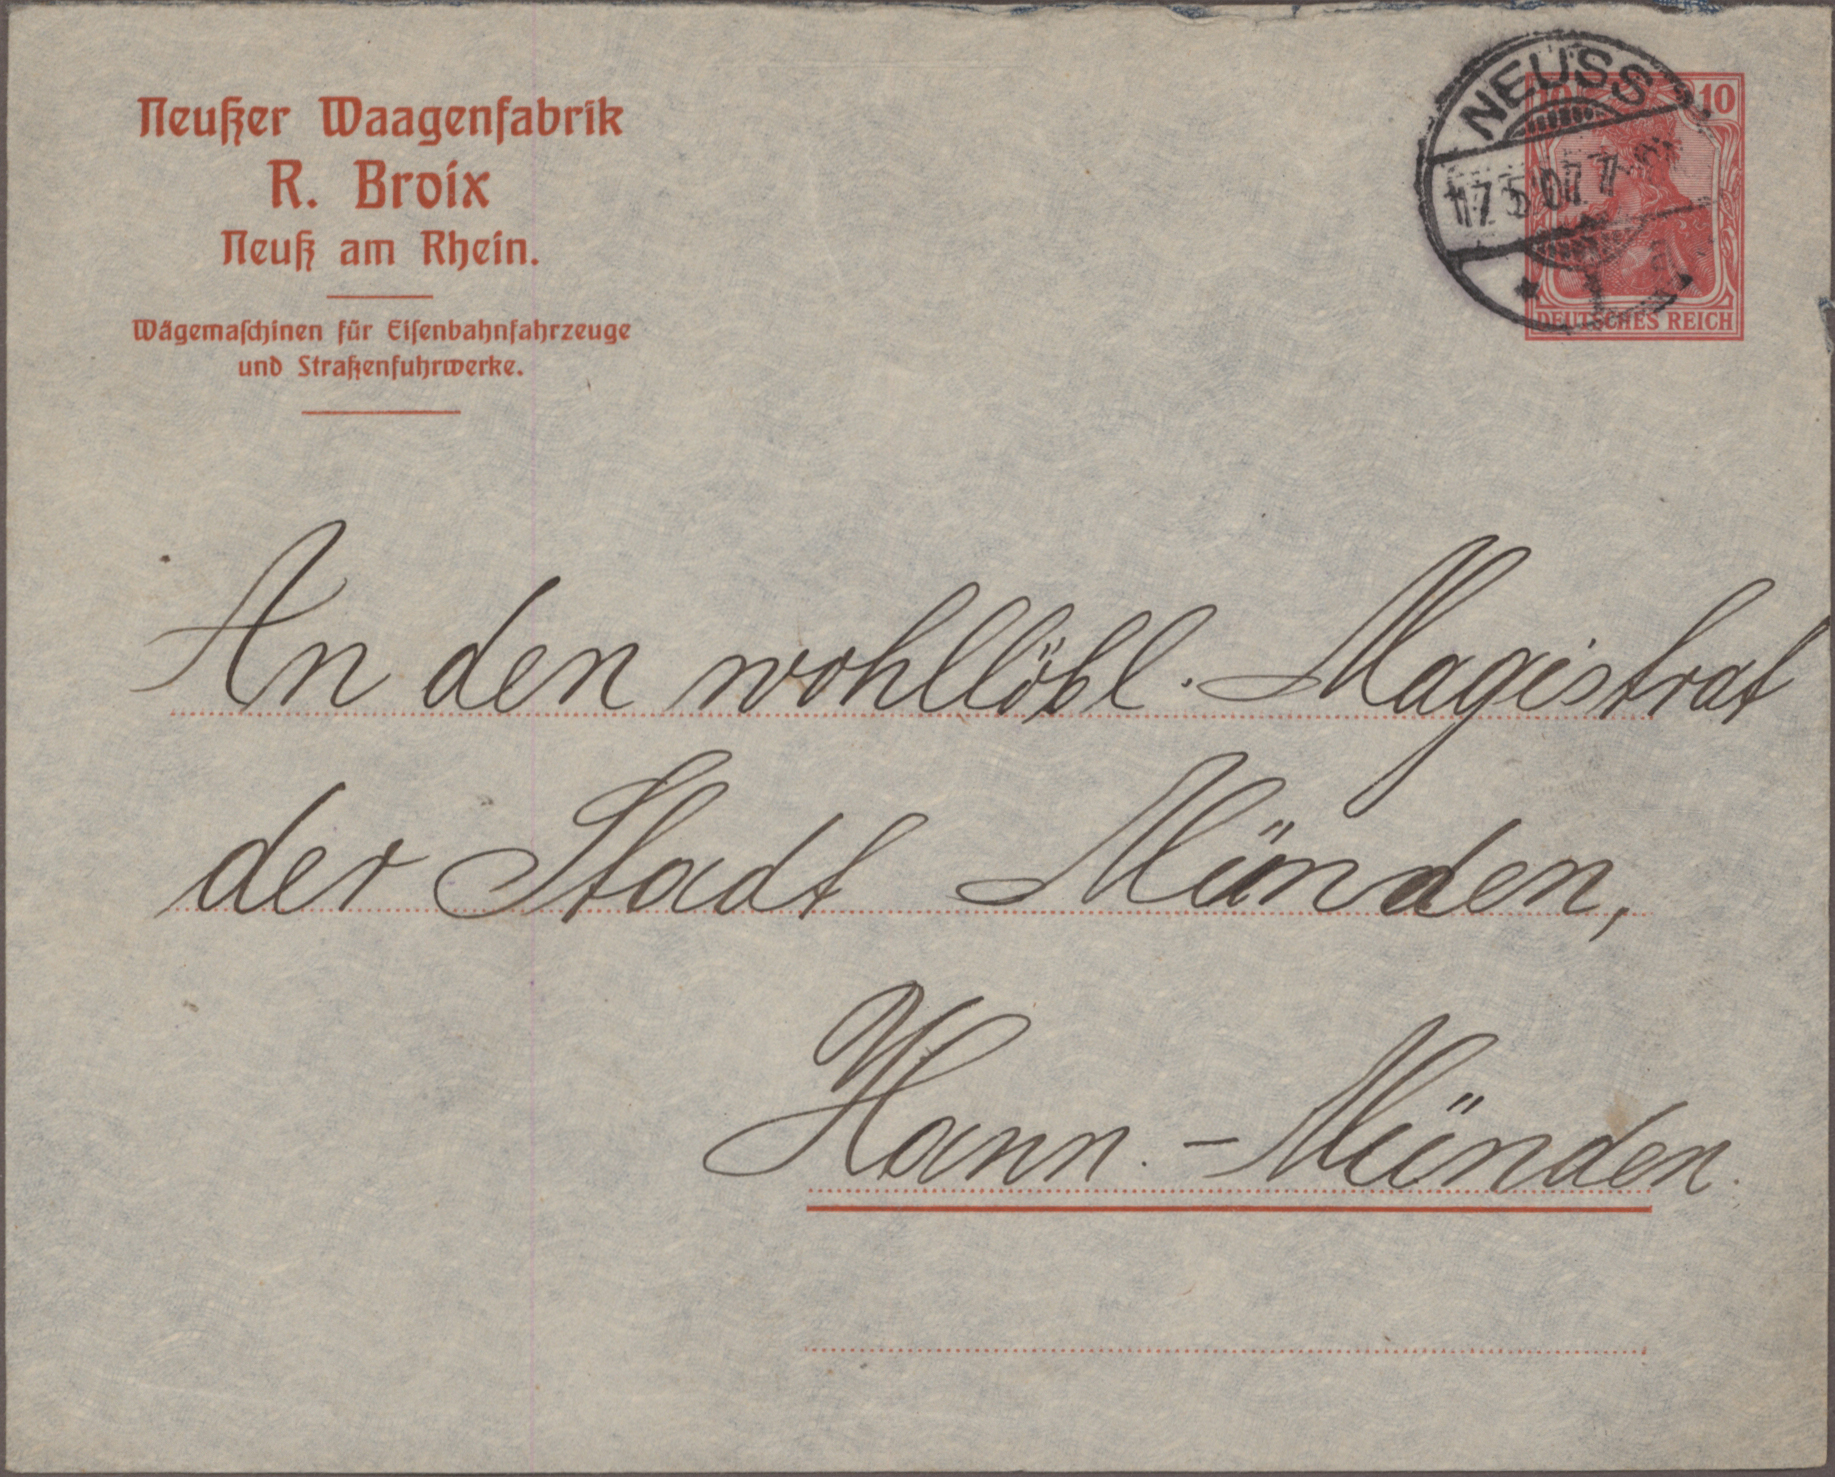 Neußer Waagenfabrik
R. Broix
Neuß am Rhein.
Wägemaſchinen für Eiſenbahnfahrzeuge
und Straßenfuhrwerke.
NEUSS
10
17.5.07.7-
DEUTSCHES REICH
An den wohllöbl. Magistrat
der Stadt Münden,
Hann.-Münden.